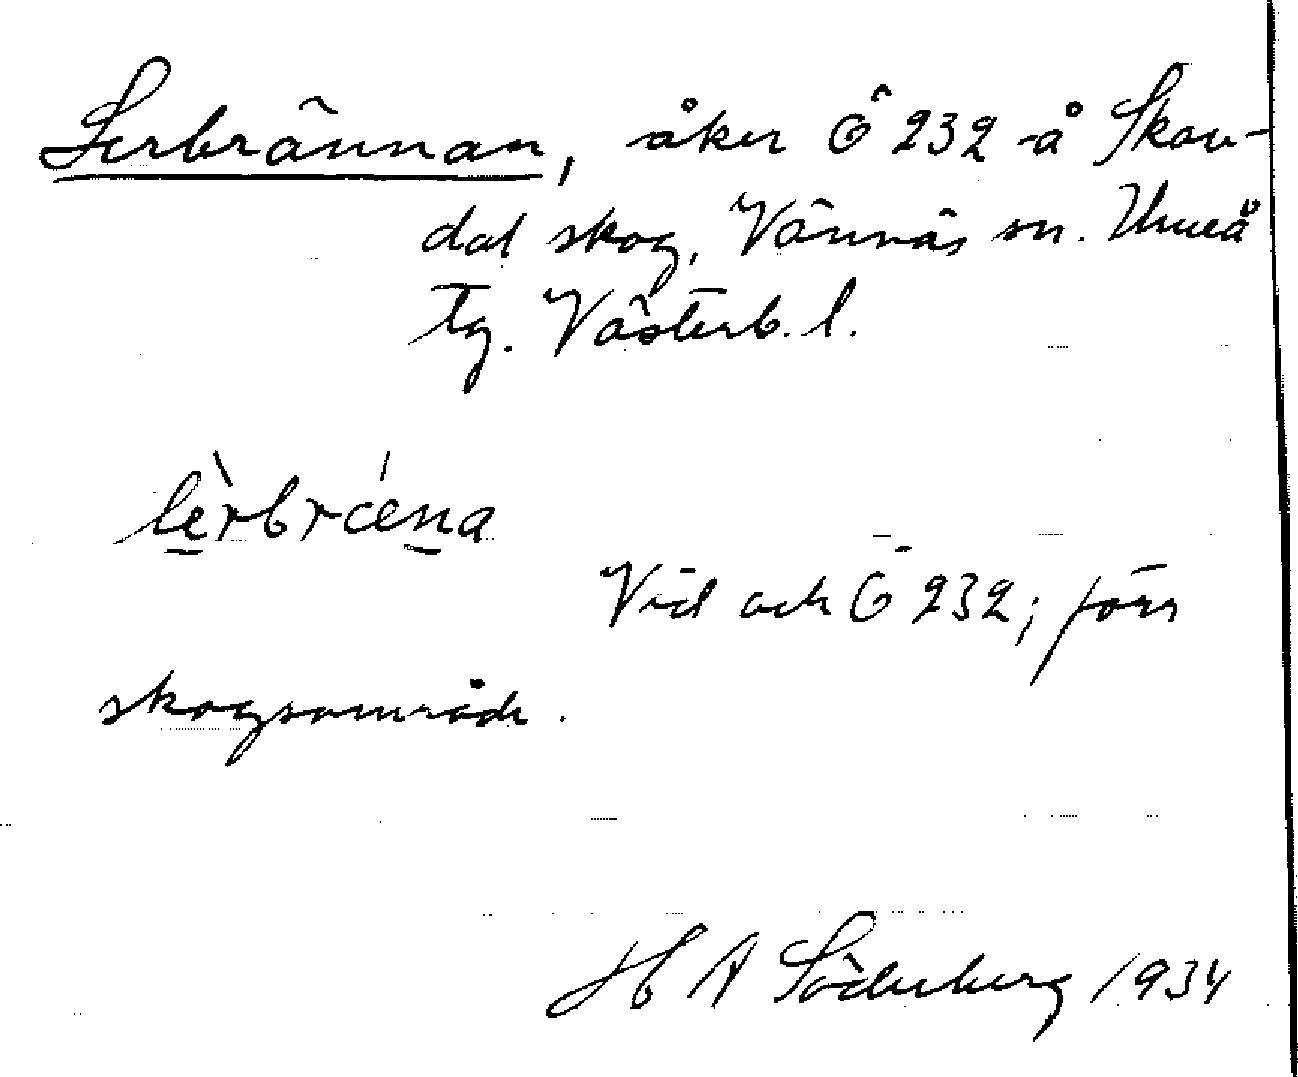 Lerbrännan, åker Ö 232 å Skau-
dal skog, Vännäs sn. Umeå
tg. Västerb. l.
lèrbrǽna
Vid och Ö 232; förr
skogsområde.
H A Söderberg 1934